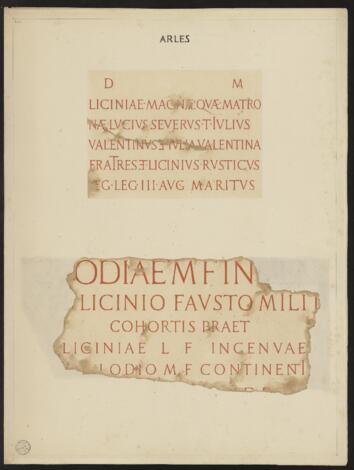 ARLES
D M
LICINIAE·MAGNAE·QVAE·MATRO
NAE LVCIVS SEVERVS·T·IVLIVS
VALENTINVS ET IVLIA VALENTINA
FRATRES·ET LICINIVS RVSTICVS
LEG·III·AVG MARITVS
ODIAE M F IN
LICINIO FAVSTO MILIT
COHORTIS PRAET
LICINIAE L F INGENVAE
LODIO M F CONTINENT